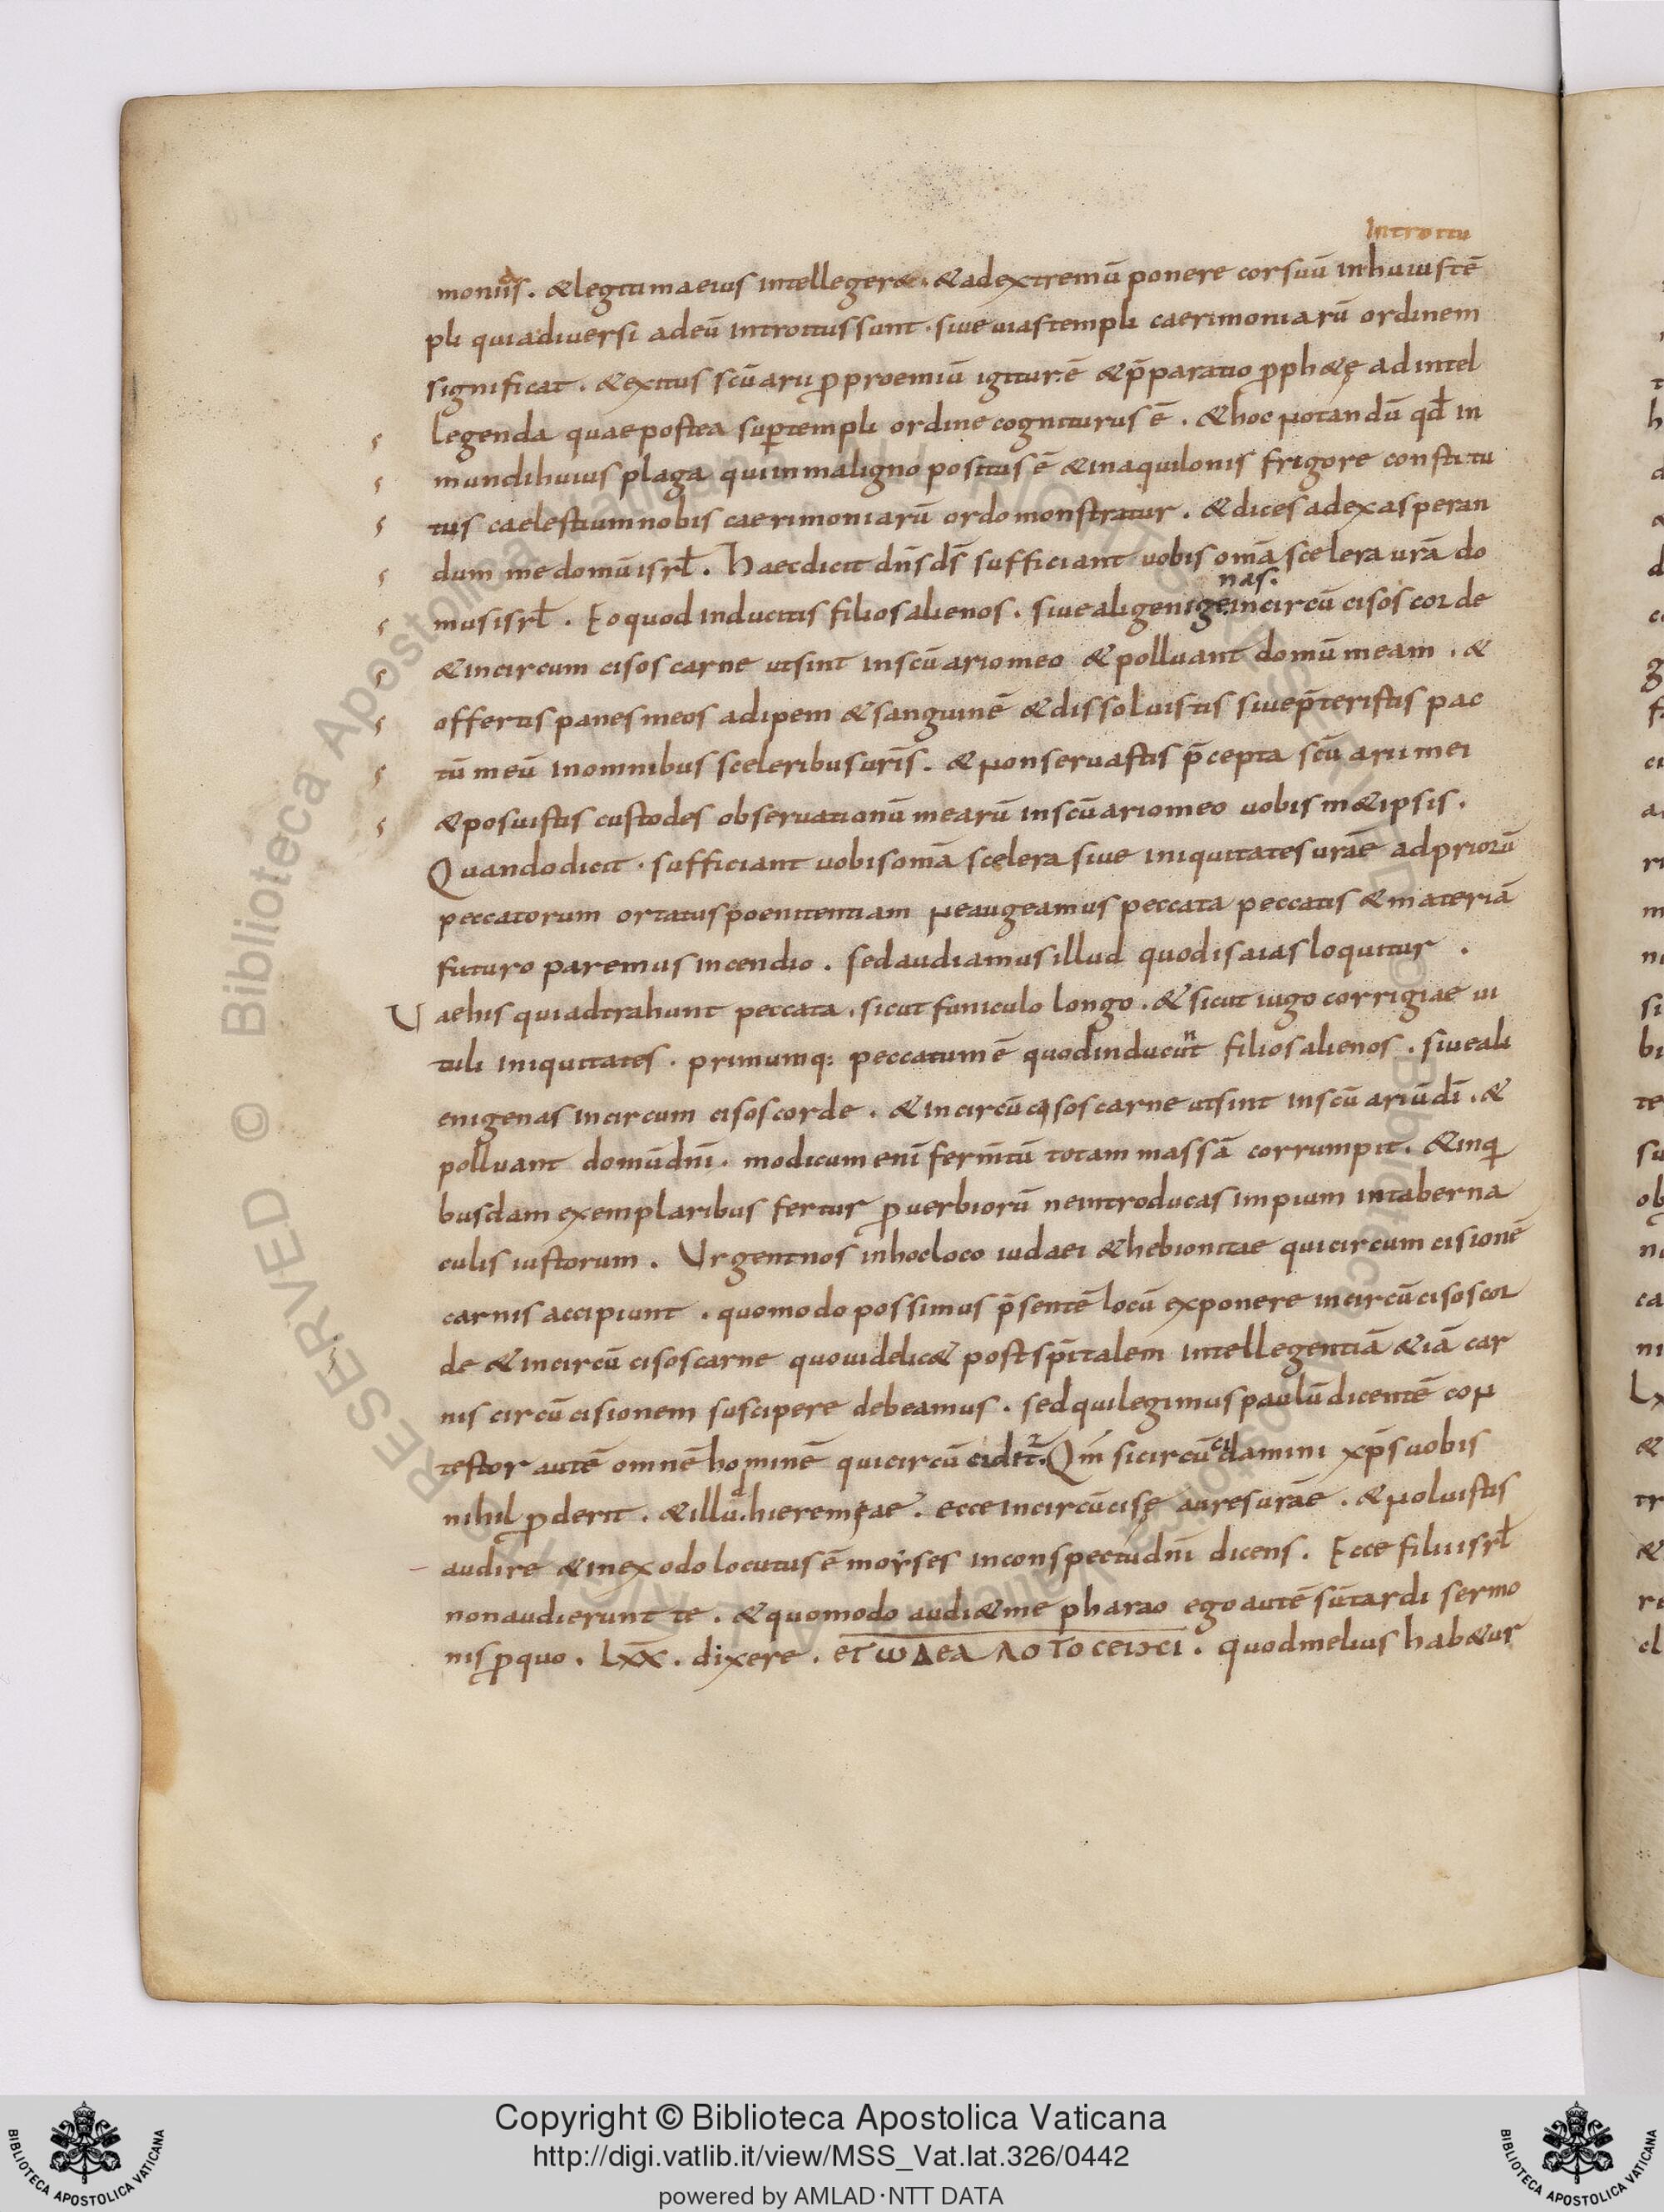 Introitu
moniis. & legitima eius intellegere. & ad extremū ponere cor suū in huius tē
pli quia diversi ad eū introitus sunt. sive vias templi caerimoniarū ordinem
significat. & exitus scūarii p proemiū igitur ē & p̄paratio pph&ę ad intel
legenda quae postea sup templi ordine cogniturus ē. & hoc notandū qd̄ in
mundi huius plaga qui in maligno positus ē & in aquilonis frigore constitu
tus caelestium nobis caerimoniarū ordo monstratur. & dices ad exasperan
dum me domū isrl̄. Haec dicit dn̄s ds̄ sufficiant vobis omā scelera urā do
mus isrl̄. Eo quod inducitis filios alienos. sive aligenigenas. incircūcisos corde
& incircumcisos carne ut sint in scūario meo & polluant domū meam. &
offertis panes meos adipem & sanguinē & dissolvistis sive p̄teristis pac
tū meū in omnibus sceleribus urīs. & non servastis p̄cepta scūarii mei
& posuistis custodes observationū mearū in scūario meo vobis m&ipsis.
Quando dicit. sufficiant vobis omā scelera sive iniquitates urāe ad priorū
peccatorum ortatus poenitentiam ne augeamus peccata peccatis & materiā
futuro paremus incendio. sed audiamus illud quod isaias loquitur.
Vae his qui adtrahunt peccata. sicut funiculo longo. & sicut iugo corrigiae vi
tuli iniquitates. primumq: peccatum ē quod inducunt filios alienos. sive ali
enigenas incircumcisos corde. & incircūcisos carne ut sint in scūariū dī. &
polluant domū dn̄i. modicum enī fermtū totam massā corrumpit. & in qui
busdam exemplaribus fertur pverbiorū ne introducas impium in taberna
culis iustorum. Urgent nos in hoc loco iudaei & hebionitae qui circumcisionē
carnis accipiunt. quomodo possimus p̄sentē locū exponere incircūcisos cor
de & incircūcisos carne quo videlic& post spītalem intellegentiā &iā car
nis circūcisionem suscipere debeamus. sed qui legimus paulū dicentē con
testor autē omnē hominē qui circūcidit. Qm̄ si circūcidamini xp̄s vobis
nihil pderit. & illud hieremięae. ecce incircūcisę aures urāe. & noluistis
audire & in exodo locutus ē moyses in conspectu dn̄i dicens. Ecce filii isrl̄
non audierunt te. & quomodo audi& me pharao ego autē sū tardi sermo
nis p quo. Lxx. dixere. ετ ωΔεα λοτοσειͻσι. quod melius hab&ur